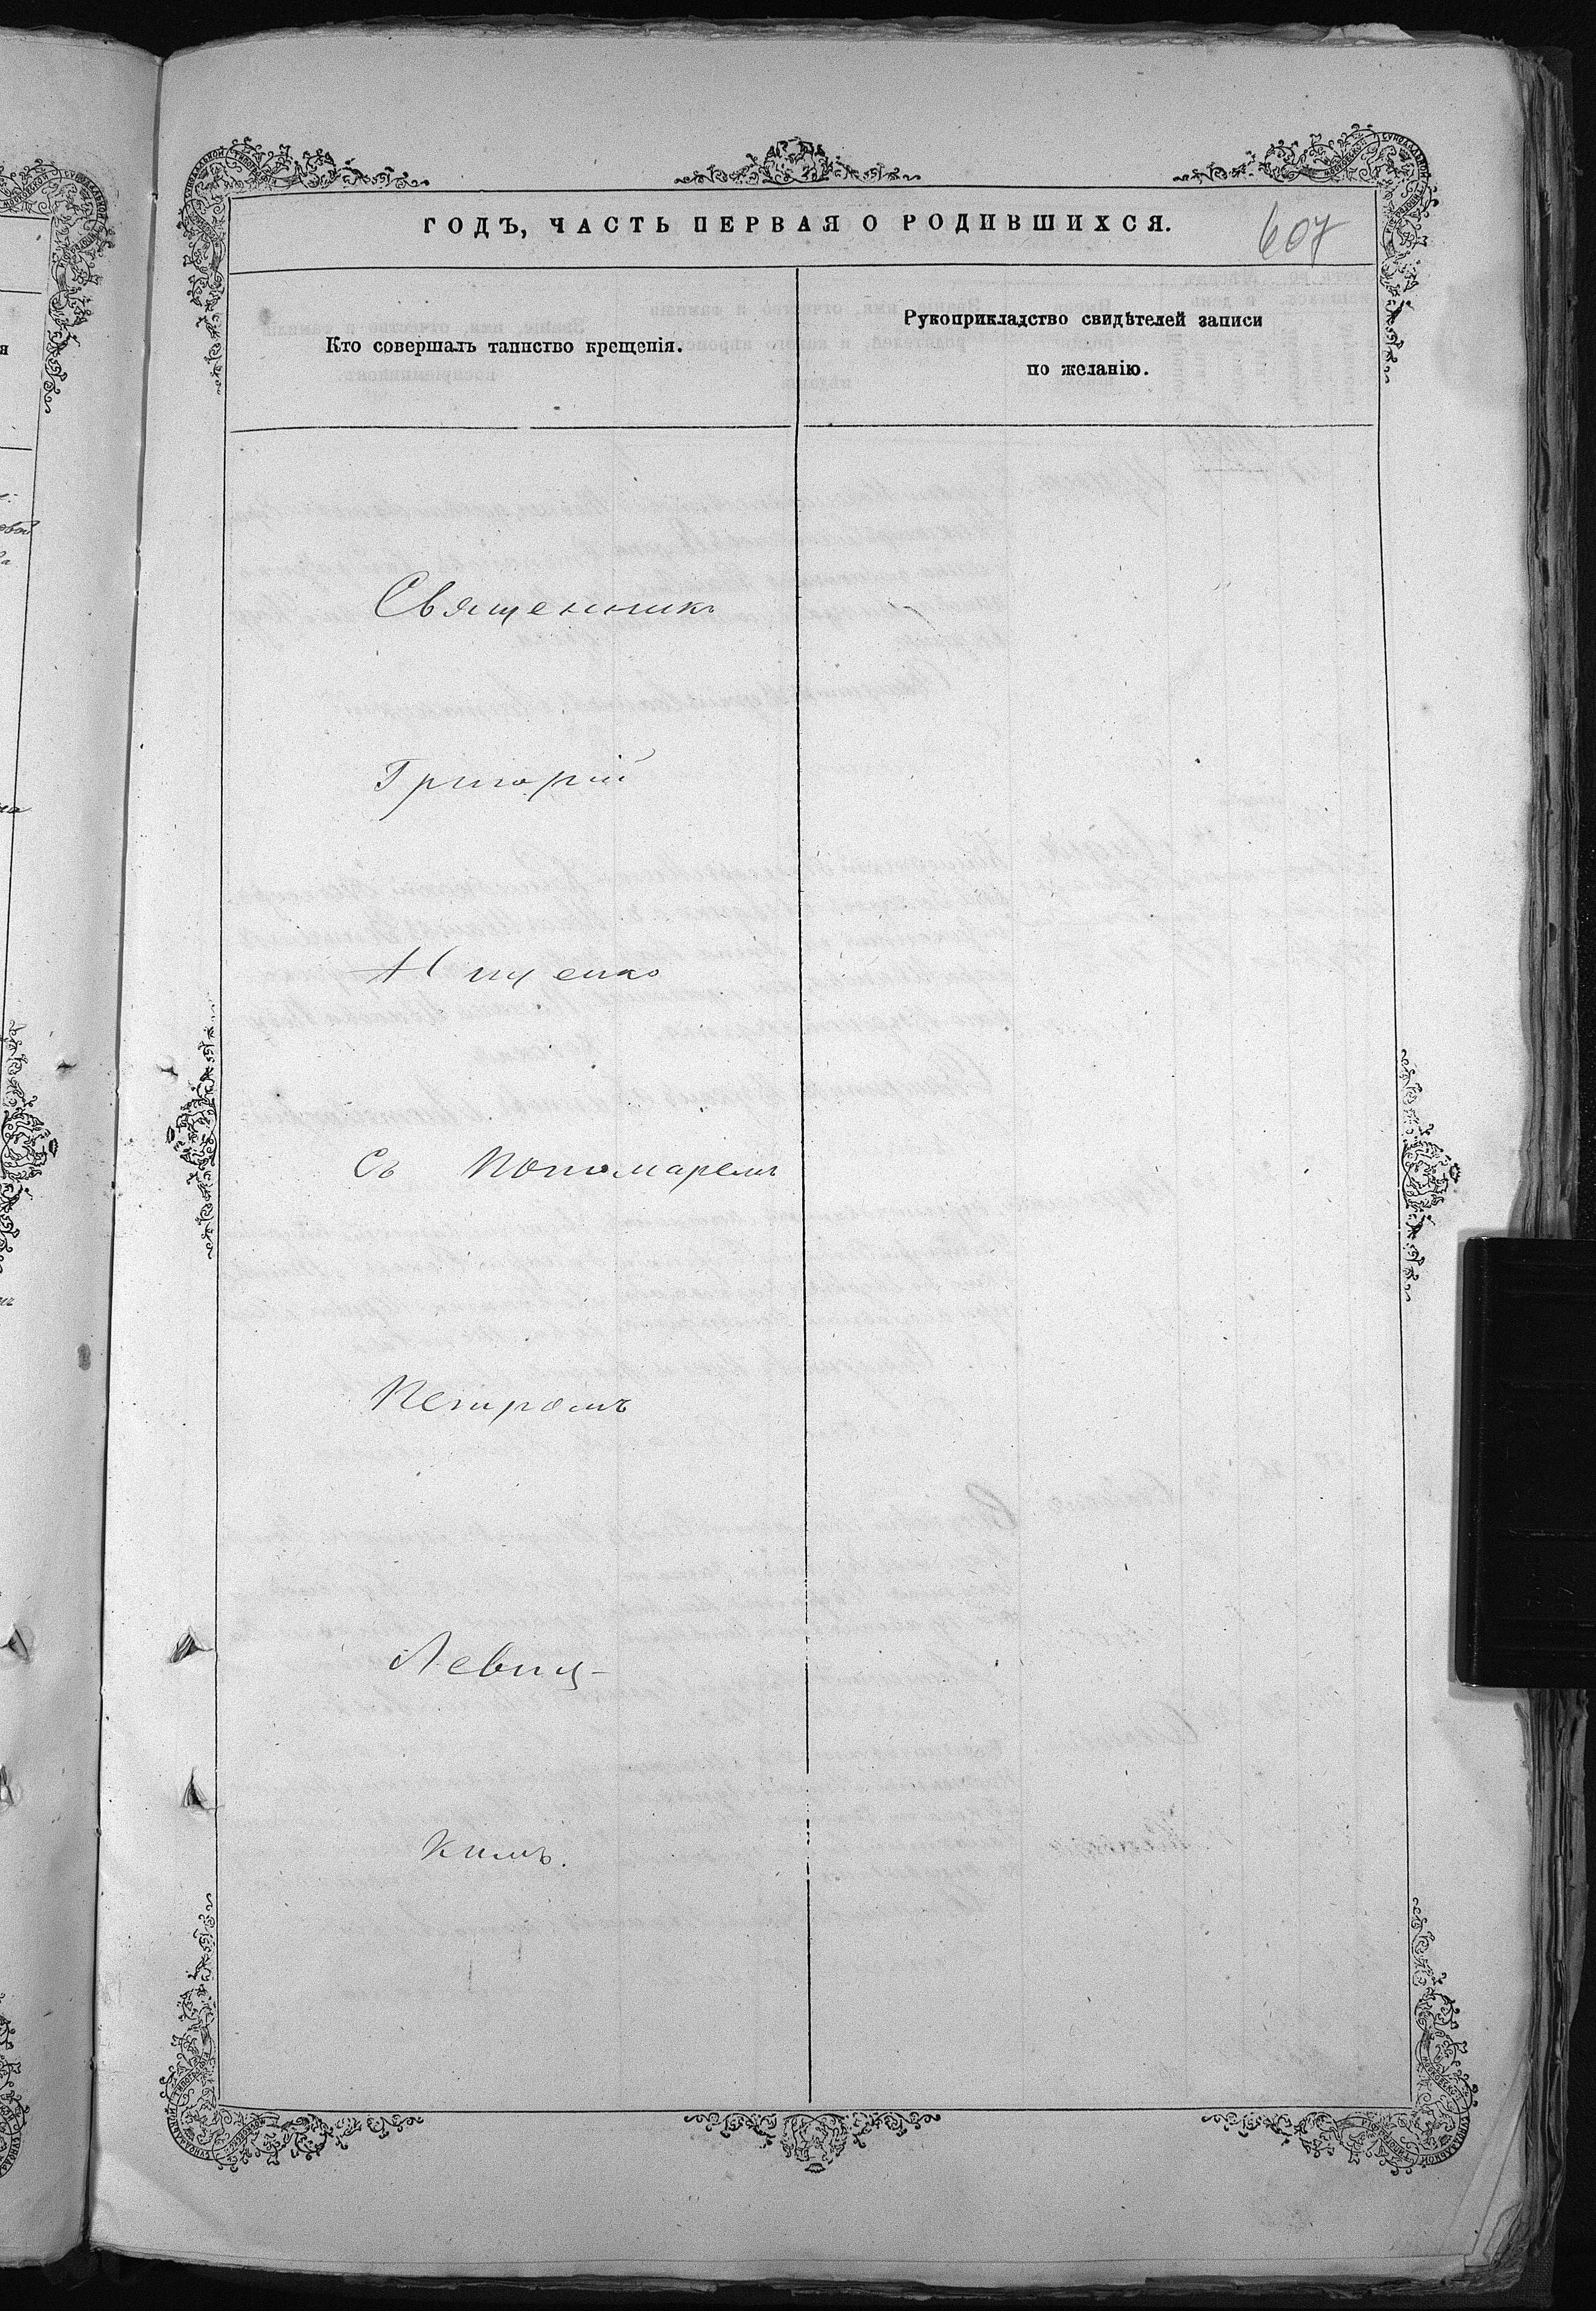 ГОДЪ, ЧАСТЬ ПЕРВАЯ О РОДИВШИХСЯ.
607
Кто совершалъ таинство крещенія.
Рукоприкладство свидѣтелей записи
по желанію.
Священникъ
Григорій
Ищенко
Съ Пономаремъ
Петромъ
Левиц-
кимъ.